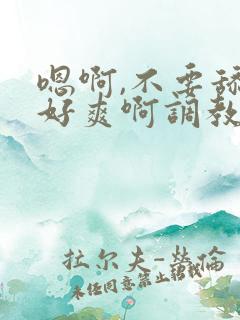 嗯啊,不要舔
好爽啊調教
拉尔夫-勞倫
未经同意禁止转载